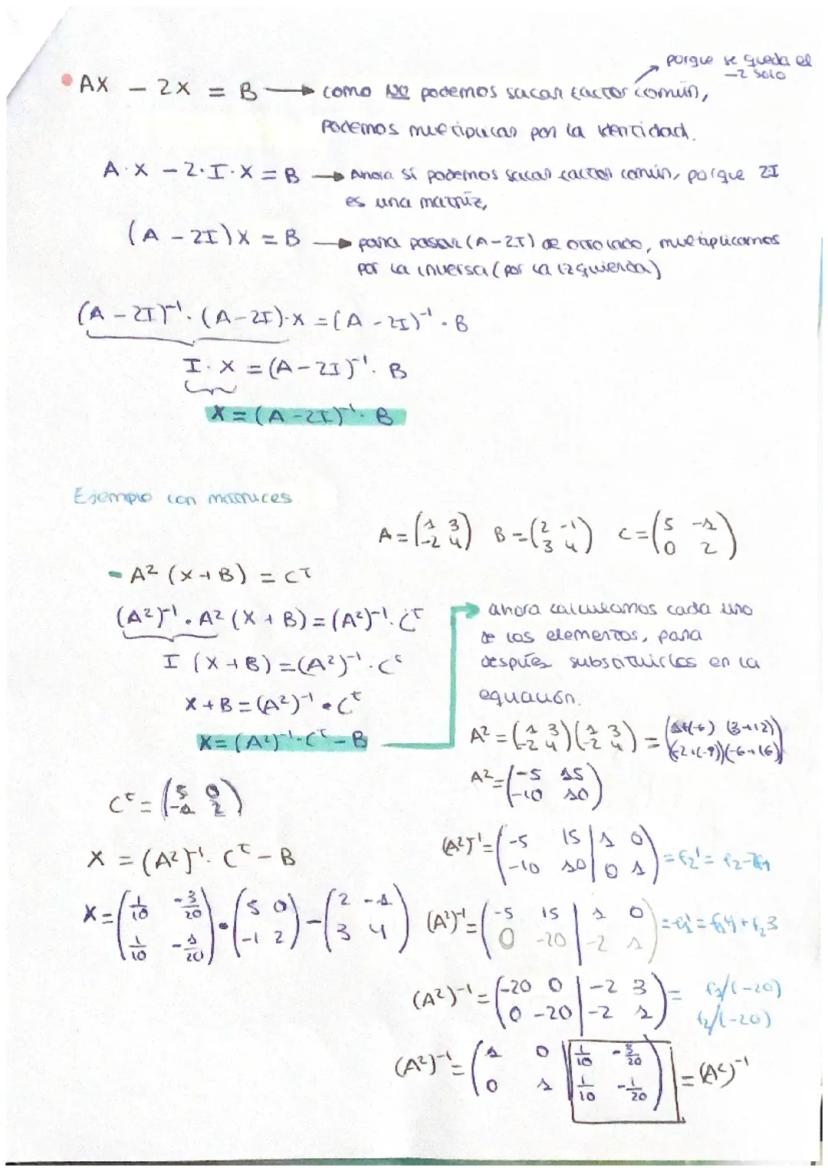 porque se queda el
-2 solo
• AX - 2X = B → como NO podemos sacar factor común,
podemos multiplicar por la identidad.
A · X - 2 · I · X = B → Ahora sí podemos sacar factor común, porque 2I
es una matriz,
(A - 2I) X = B → para pasar (A-2I) de otro lado, multiplicamos
por la inversa (por la izquierda)
(A - 2I)⁻¹ · (A - 2I) · X = (A - 2I)⁻¹ · B
I · X = (A - 2I)⁻¹ · B
X = (A - 2I)⁻¹ · B
Ejemplo con matrices
A = (1 3 / -2 4) B = (2 -1 / 3 4) C = (5 -1 / 0 2)
- A² (X + B) = Cᵗ
(A²)⁻¹ · A² (X + B) = (A²)⁻¹ · Cᵗ
I (X + B) = (A²)⁻¹ · Cᵗ
X + B = (A²)⁻¹ · Cᵗ
X = (A²)⁻¹ · Cᵗ - B
→ ahora calculamos cada uno
de los elementos, para
después substituirlos en la
equación.
A² = (1 3 / -2 4) (1 3 / -2 4) = (1+(-6) (3+12) / (-2+(-8)) (-6+16))
A² = (-5 15 / -10 10)
Cᵗ = (5 0 / -1 2)
X = (A²)⁻¹ · Cᵗ - B
X = (1/10 -3/20 / 1/10 -1/20) · (5 0 / -1 2) - (2 -1 / 3 4)
(A²)⁻¹ = (-5 15 | 1 0 / -10 10 | 0 1) = f₂' = f₂ - 2f₁
(A²)⁻¹ = (-5 15 | 1 0 / 0 -20 | -2 1) = f₁' = f₁4 + f₂3
(A²)⁻¹ = (-20 0 | -2 3 / 0 -20 | -2 1) = f₁/(-20)
f₂/(-20)
(A²)⁻¹ = (1 0 | 1/10 -3/20 / 0 1 | 1/10 -1/20) = (A²)⁻¹